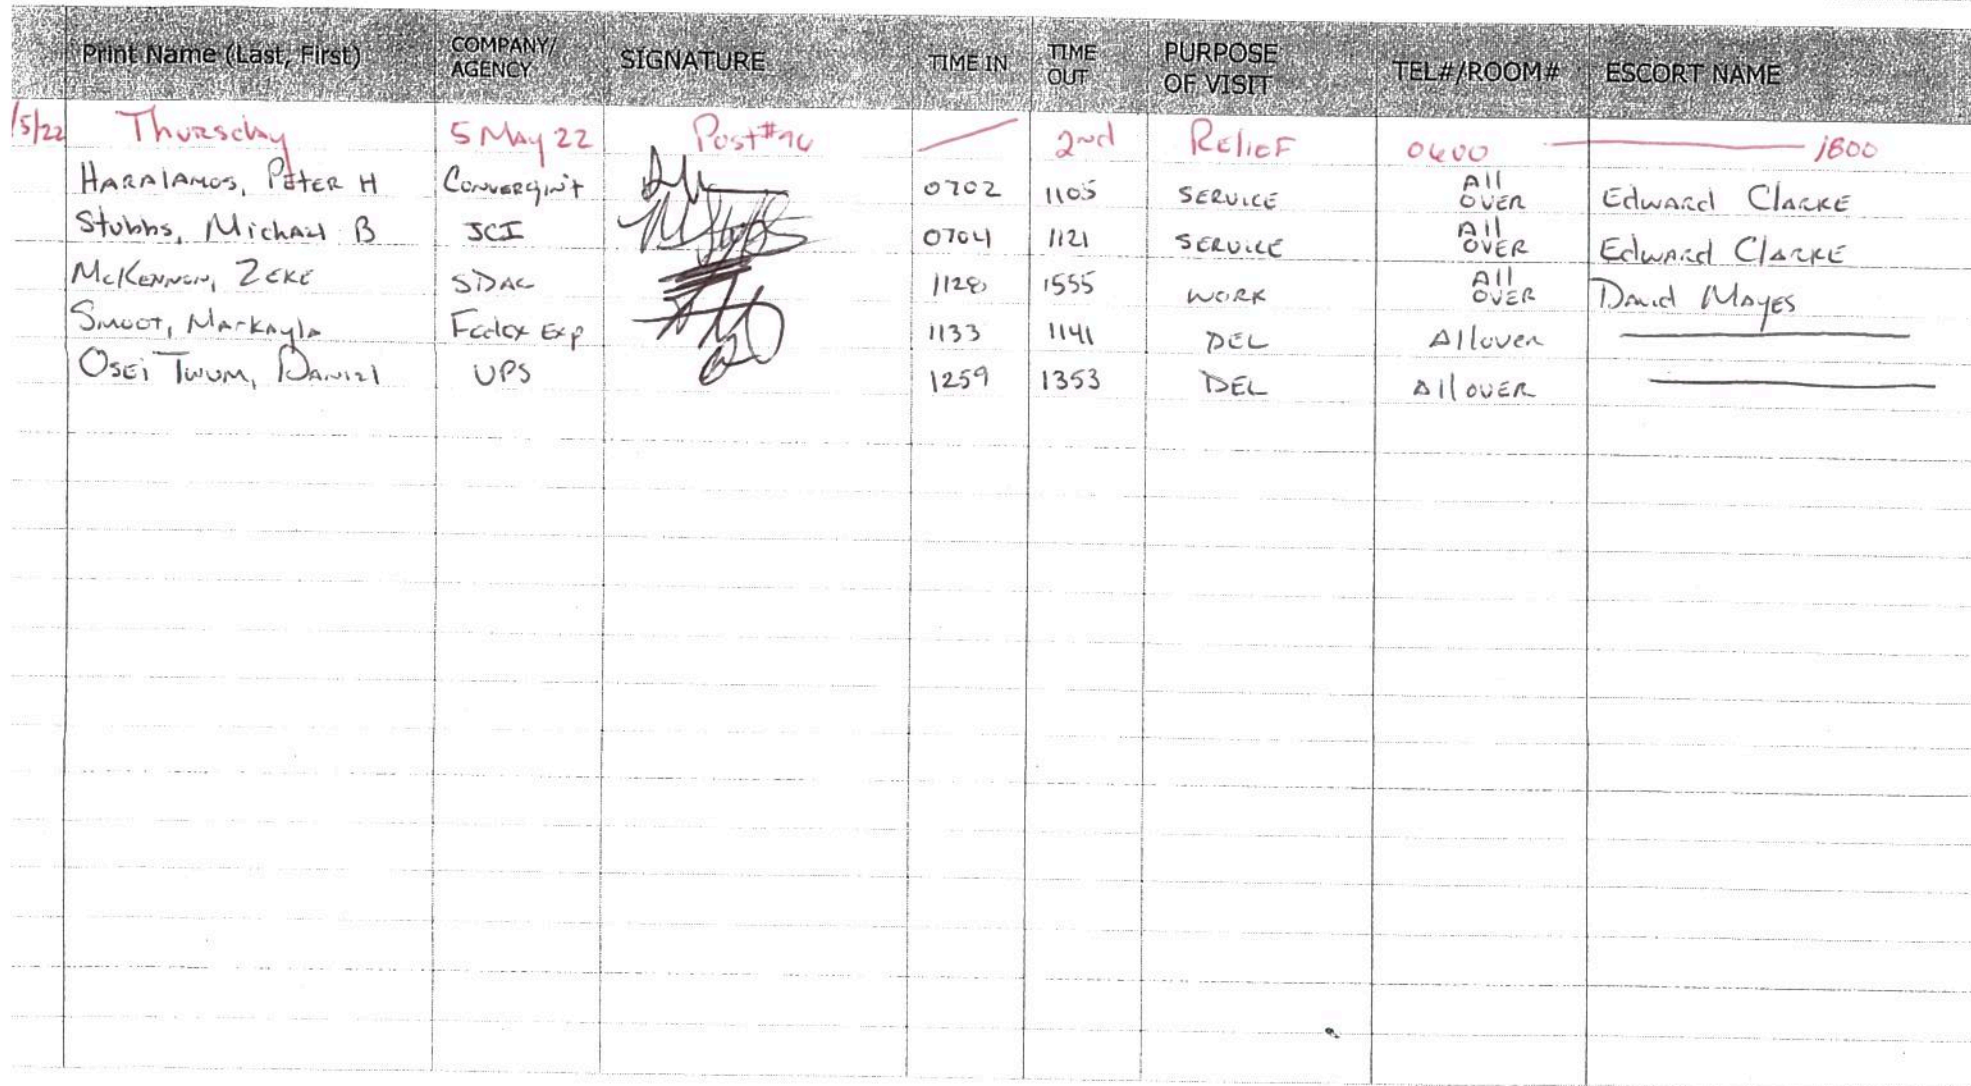 Print Name (Last, First) COMPANY/ AGENCY SIGNATURE TIME IN TIME OUT PURPOSE OF VISIT TEL#/ROOM# ESCORT NAME
/5/22 Thursday 5 May 22 Post# 2nd Relief 0600 1800
HARAlAMOS, PETER H Convergint 0702 1105 SERVICE All OVER Edward Clarke
Stubbs, Michael B JCI 0704 1121 SERVICE All OVER Edward Clarke
McKennon, ZEKE SDAC 1128 1555 WORK All OVER David Mayes
Smoot, Markayla Fedex Exp 1133 1141 DEL Allover
OSEi Twum, Daniel UPS 1259 1353 DEL All OVER